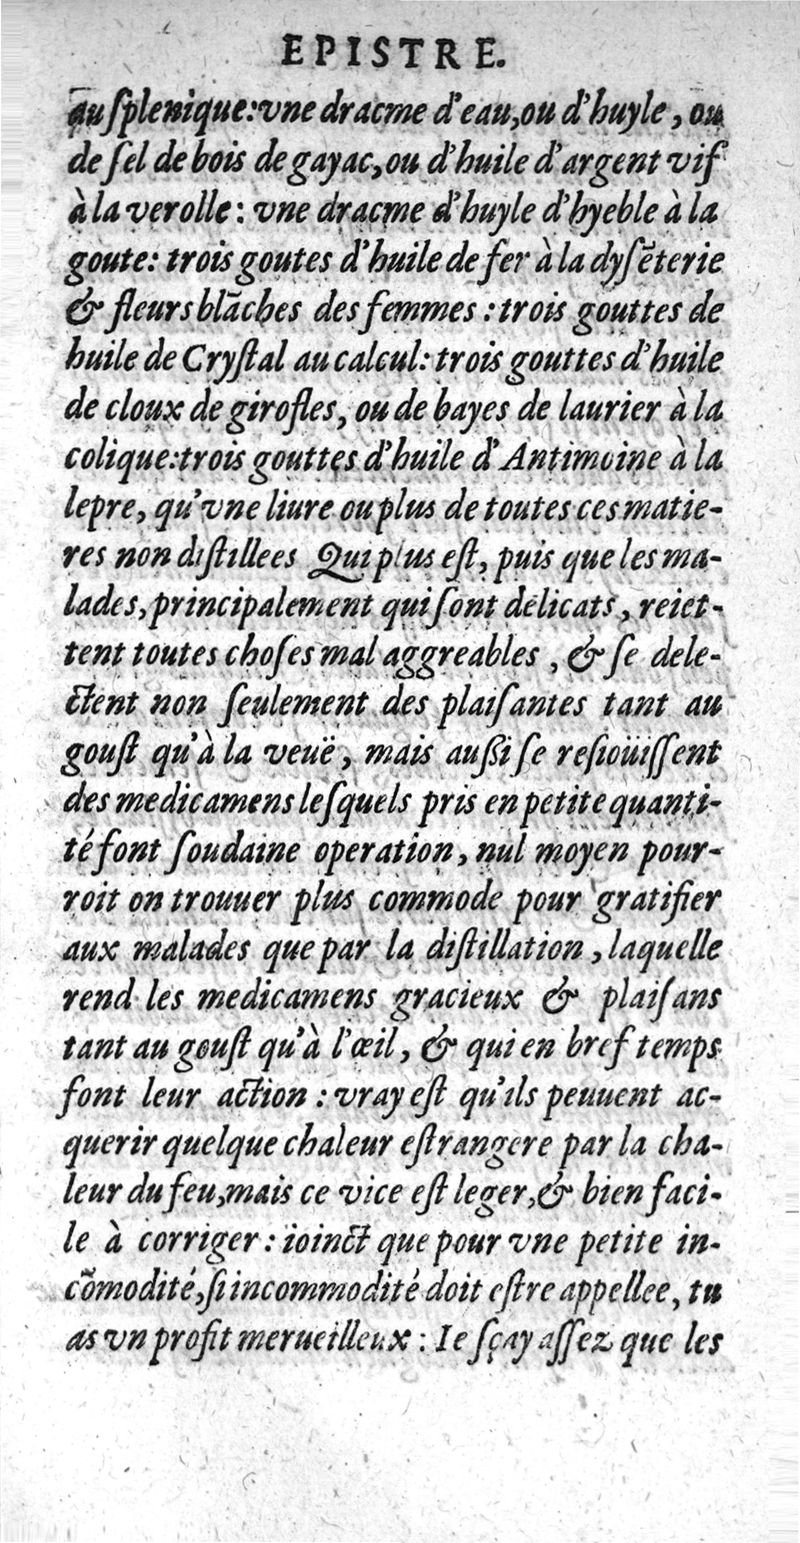 EPISTRE.
au ſplenique: vne dracme d'eau, ou d'huyle, ou
de ſel de bois de gayac, ou d'huile d'argent vif
à la verolle: vne dracme d'huyle d'hyeble à la
goute: trois goutes d'huile de fer à la dyſẽterie
& fleurs blãches des femmes: trois gouttes de
huile de Cryſtal au calcul: trois gouttes d'huile
de cloux de girofles, ou de bayes de laurier à la
colique: trois gouttes d'huile d'Antimoine à la
lepre, qu'vne liure ou plus de toutes ces matie-
res non diſtillees Qui plus eſt, puis que les ma-
lades, principalement qui ſont delicats, reiet-
tent toutes choſes mal aggreables, & ſe dele-
ctent non ſeulement des plaiſantes tant au
gouſt qu'à la veuë, mais außi ſe reſioüiſſent
des medicamens leſquels pris en petite quanti-
té font ſoudaine operation, nul moyen pour-
roit on trouuer plus commode pour gratifier
aux malades que par la diſtillation, laquelle
rend les medicamens gracieux & plaiſans
tant au gouſt qu'à l'œil, & qui en bref temps
font leur action: vray eſt qu'ils peuuent ac-
querir quelque chaleur eſtrangere par la cha-
leur du feu, mais ce vice eſt leger, & bien faci-
le à corriger: ioinct que pour vne petite in-
cõmodité, ſi incommodité doit eſtre appellee, tu
as vn profit merueilleux: Ie ſçay aſſez que les